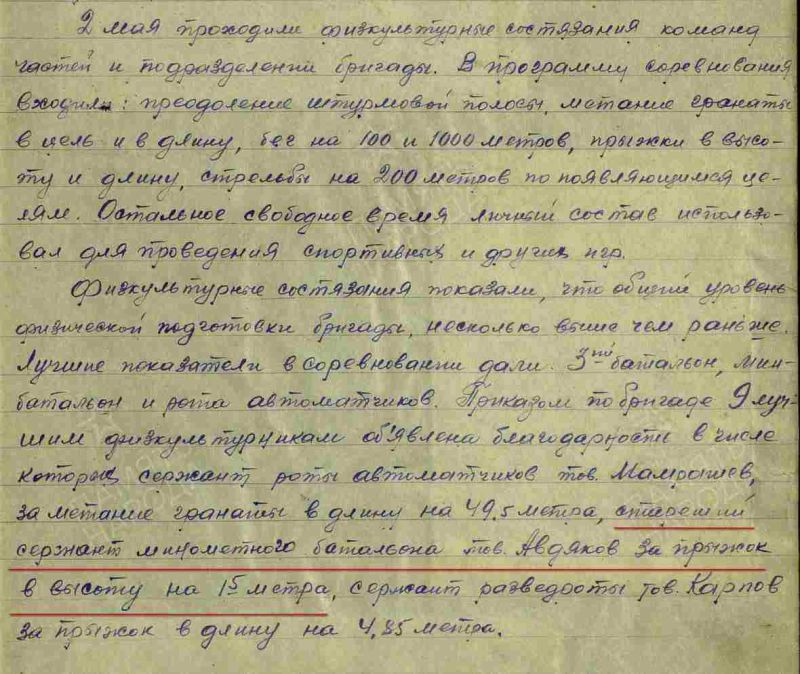 2 мая проходили физкультурные состязания команд
частей и подразделений бригады. В программу соревнования
входили: преодоление штурмовой полосы, метание гранаты
в цель и в длину, бег на 100 и 1000 метров, прыжки в высо-
ту и длину, стрельбы на 200 метров по появляющимся це-
лям. Остальное свободное время личный состав использо-
вал для проведения спортивных и других игр.
Физкультурные состязания показали, что общий уровень
физической подготовки бригады, несколько выше чем раньше.
Лучшие показатели в соревновании дали 3ий батальон, мин-
батальон и рота автоматчиков. Приказом по бригаде 9 луч-
шим физкультурникам об'явлена благодарность в числе
которых сержант роты автоматчиков тов.
за метание гранаты в длину на 49,5 метра, старший
сержант минометного батальона тов. Авдяков за прыжок
в высоту на 15 метра, сержант разведроты тов. Карпов
за прыжок в длину на 4,85 метра.